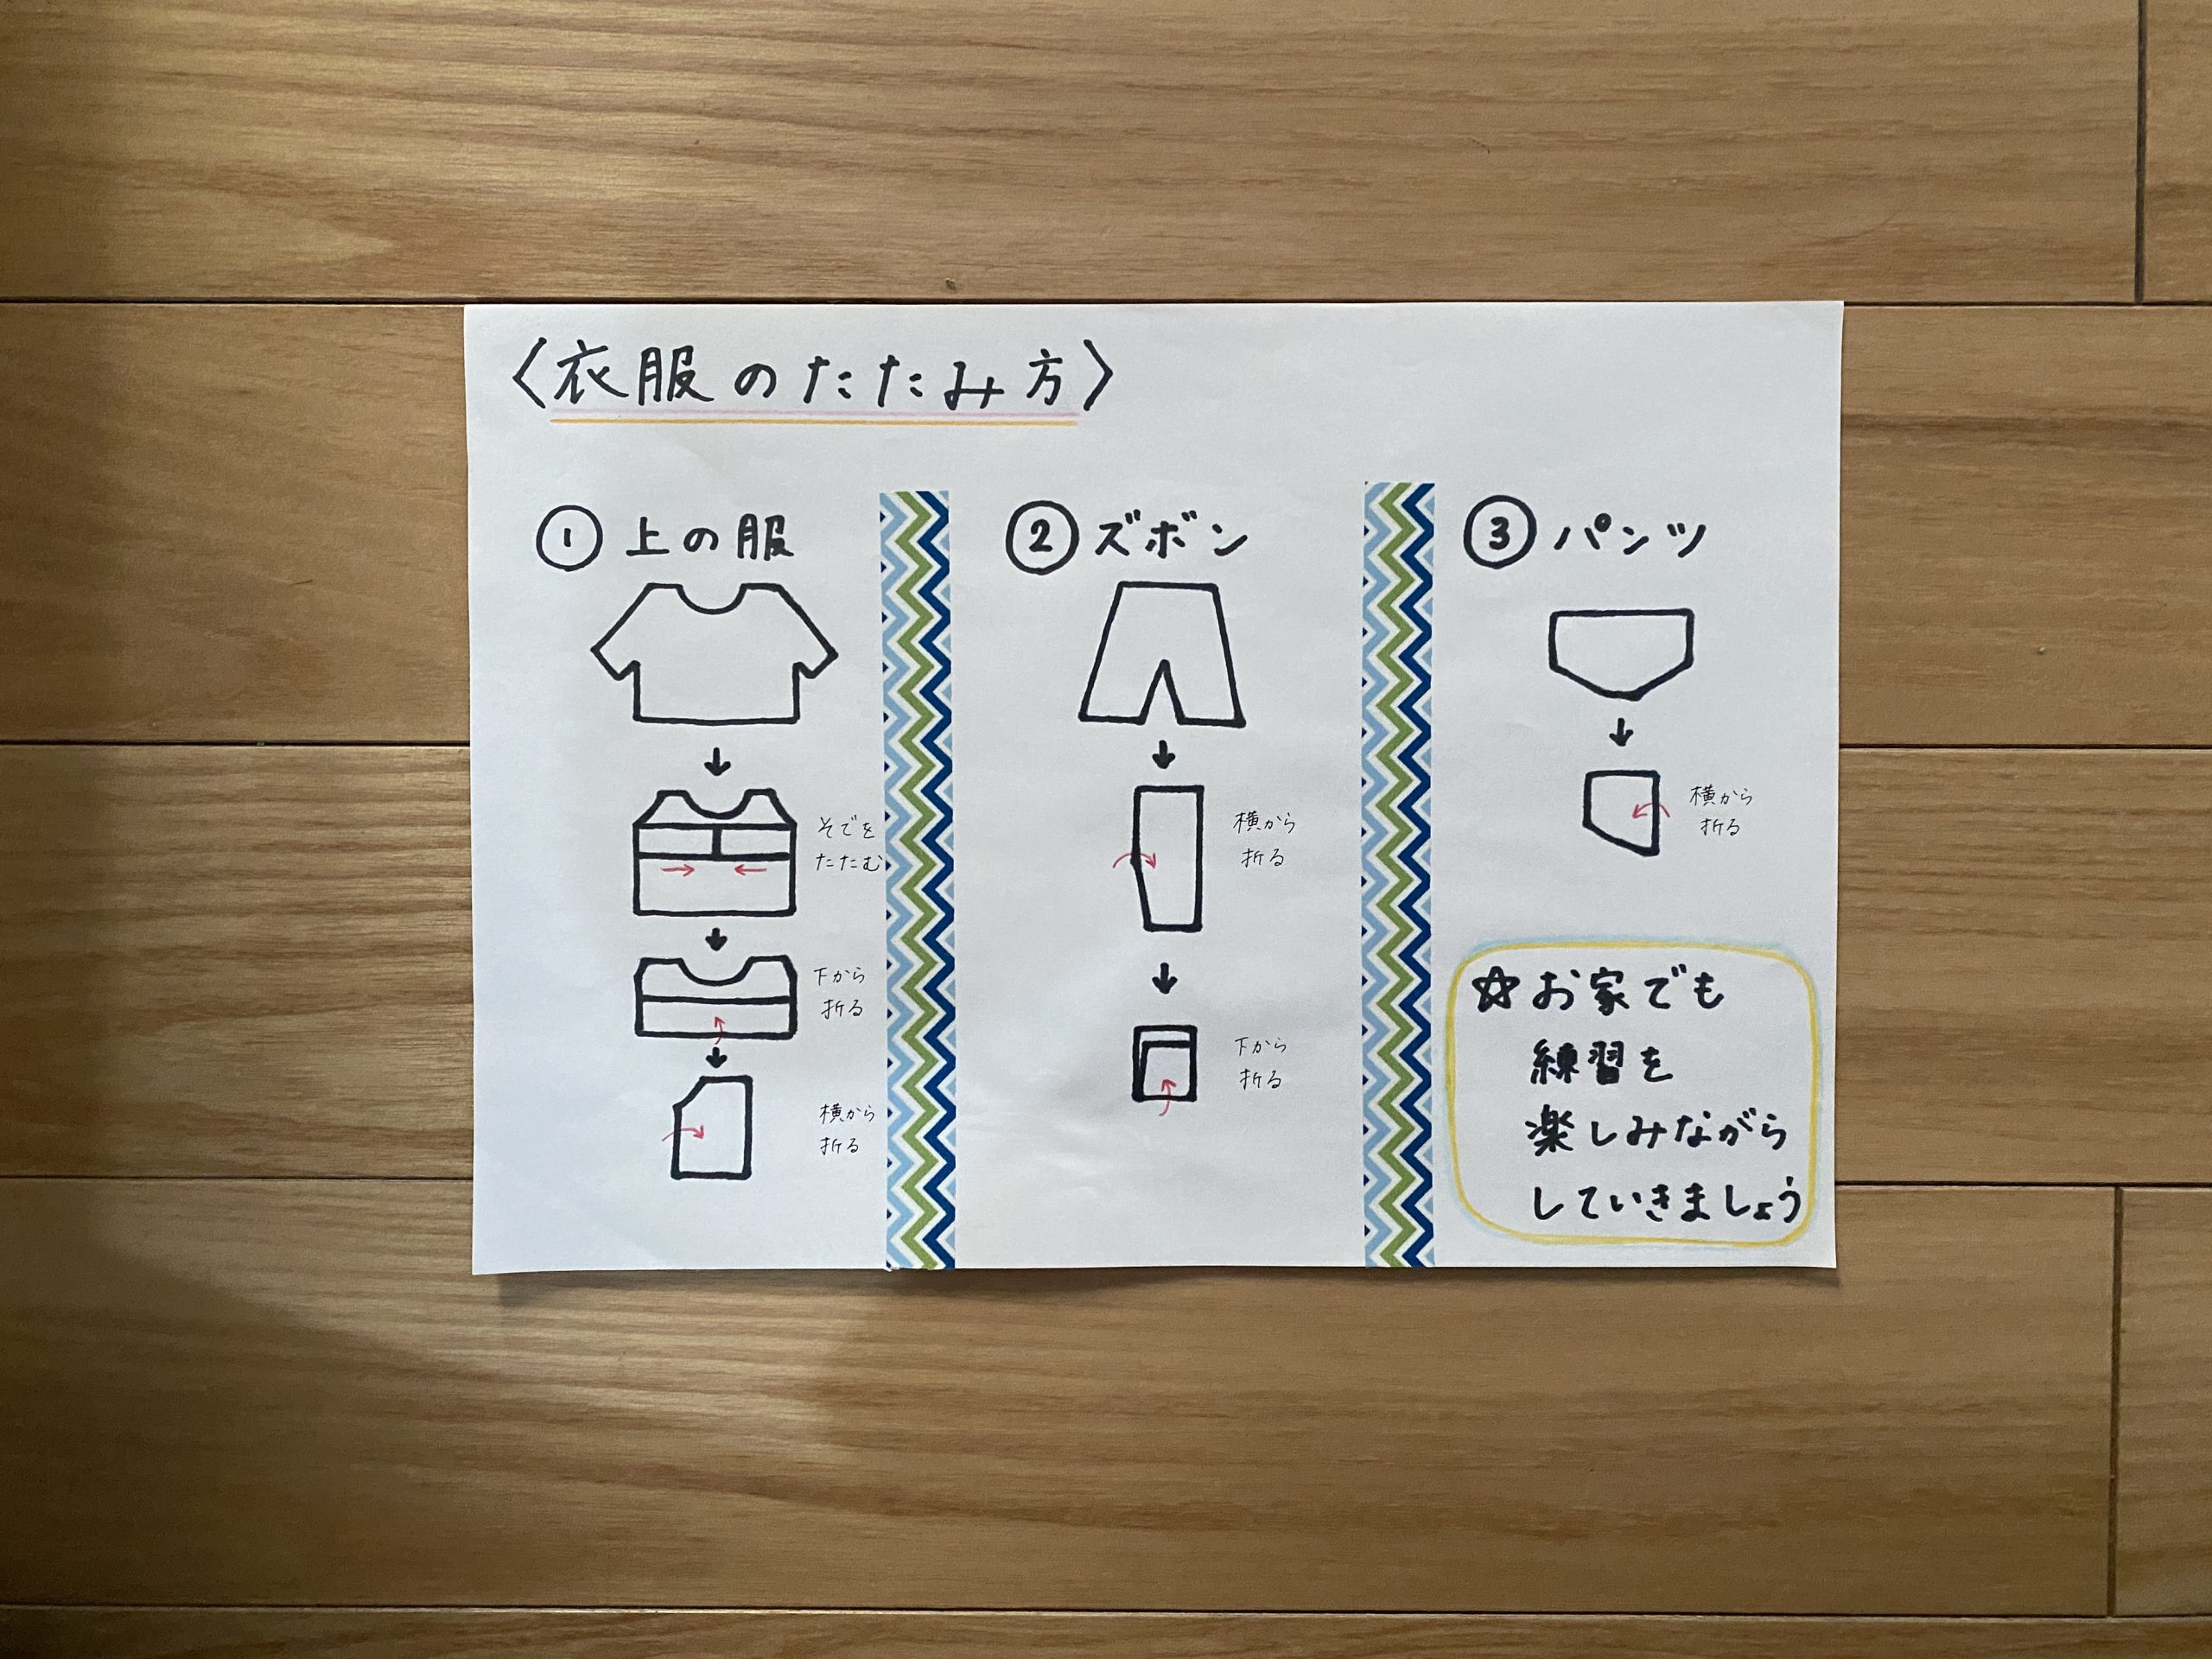 〈衣服のたたみ方〉
① 上の服
そでを
たたむ
下から
折る
横から
折る
② ズボン
横から
折る
下から
折る
③ パンツ
横から
折る
☆お家でも
練習を
楽しみながら
していきましょう